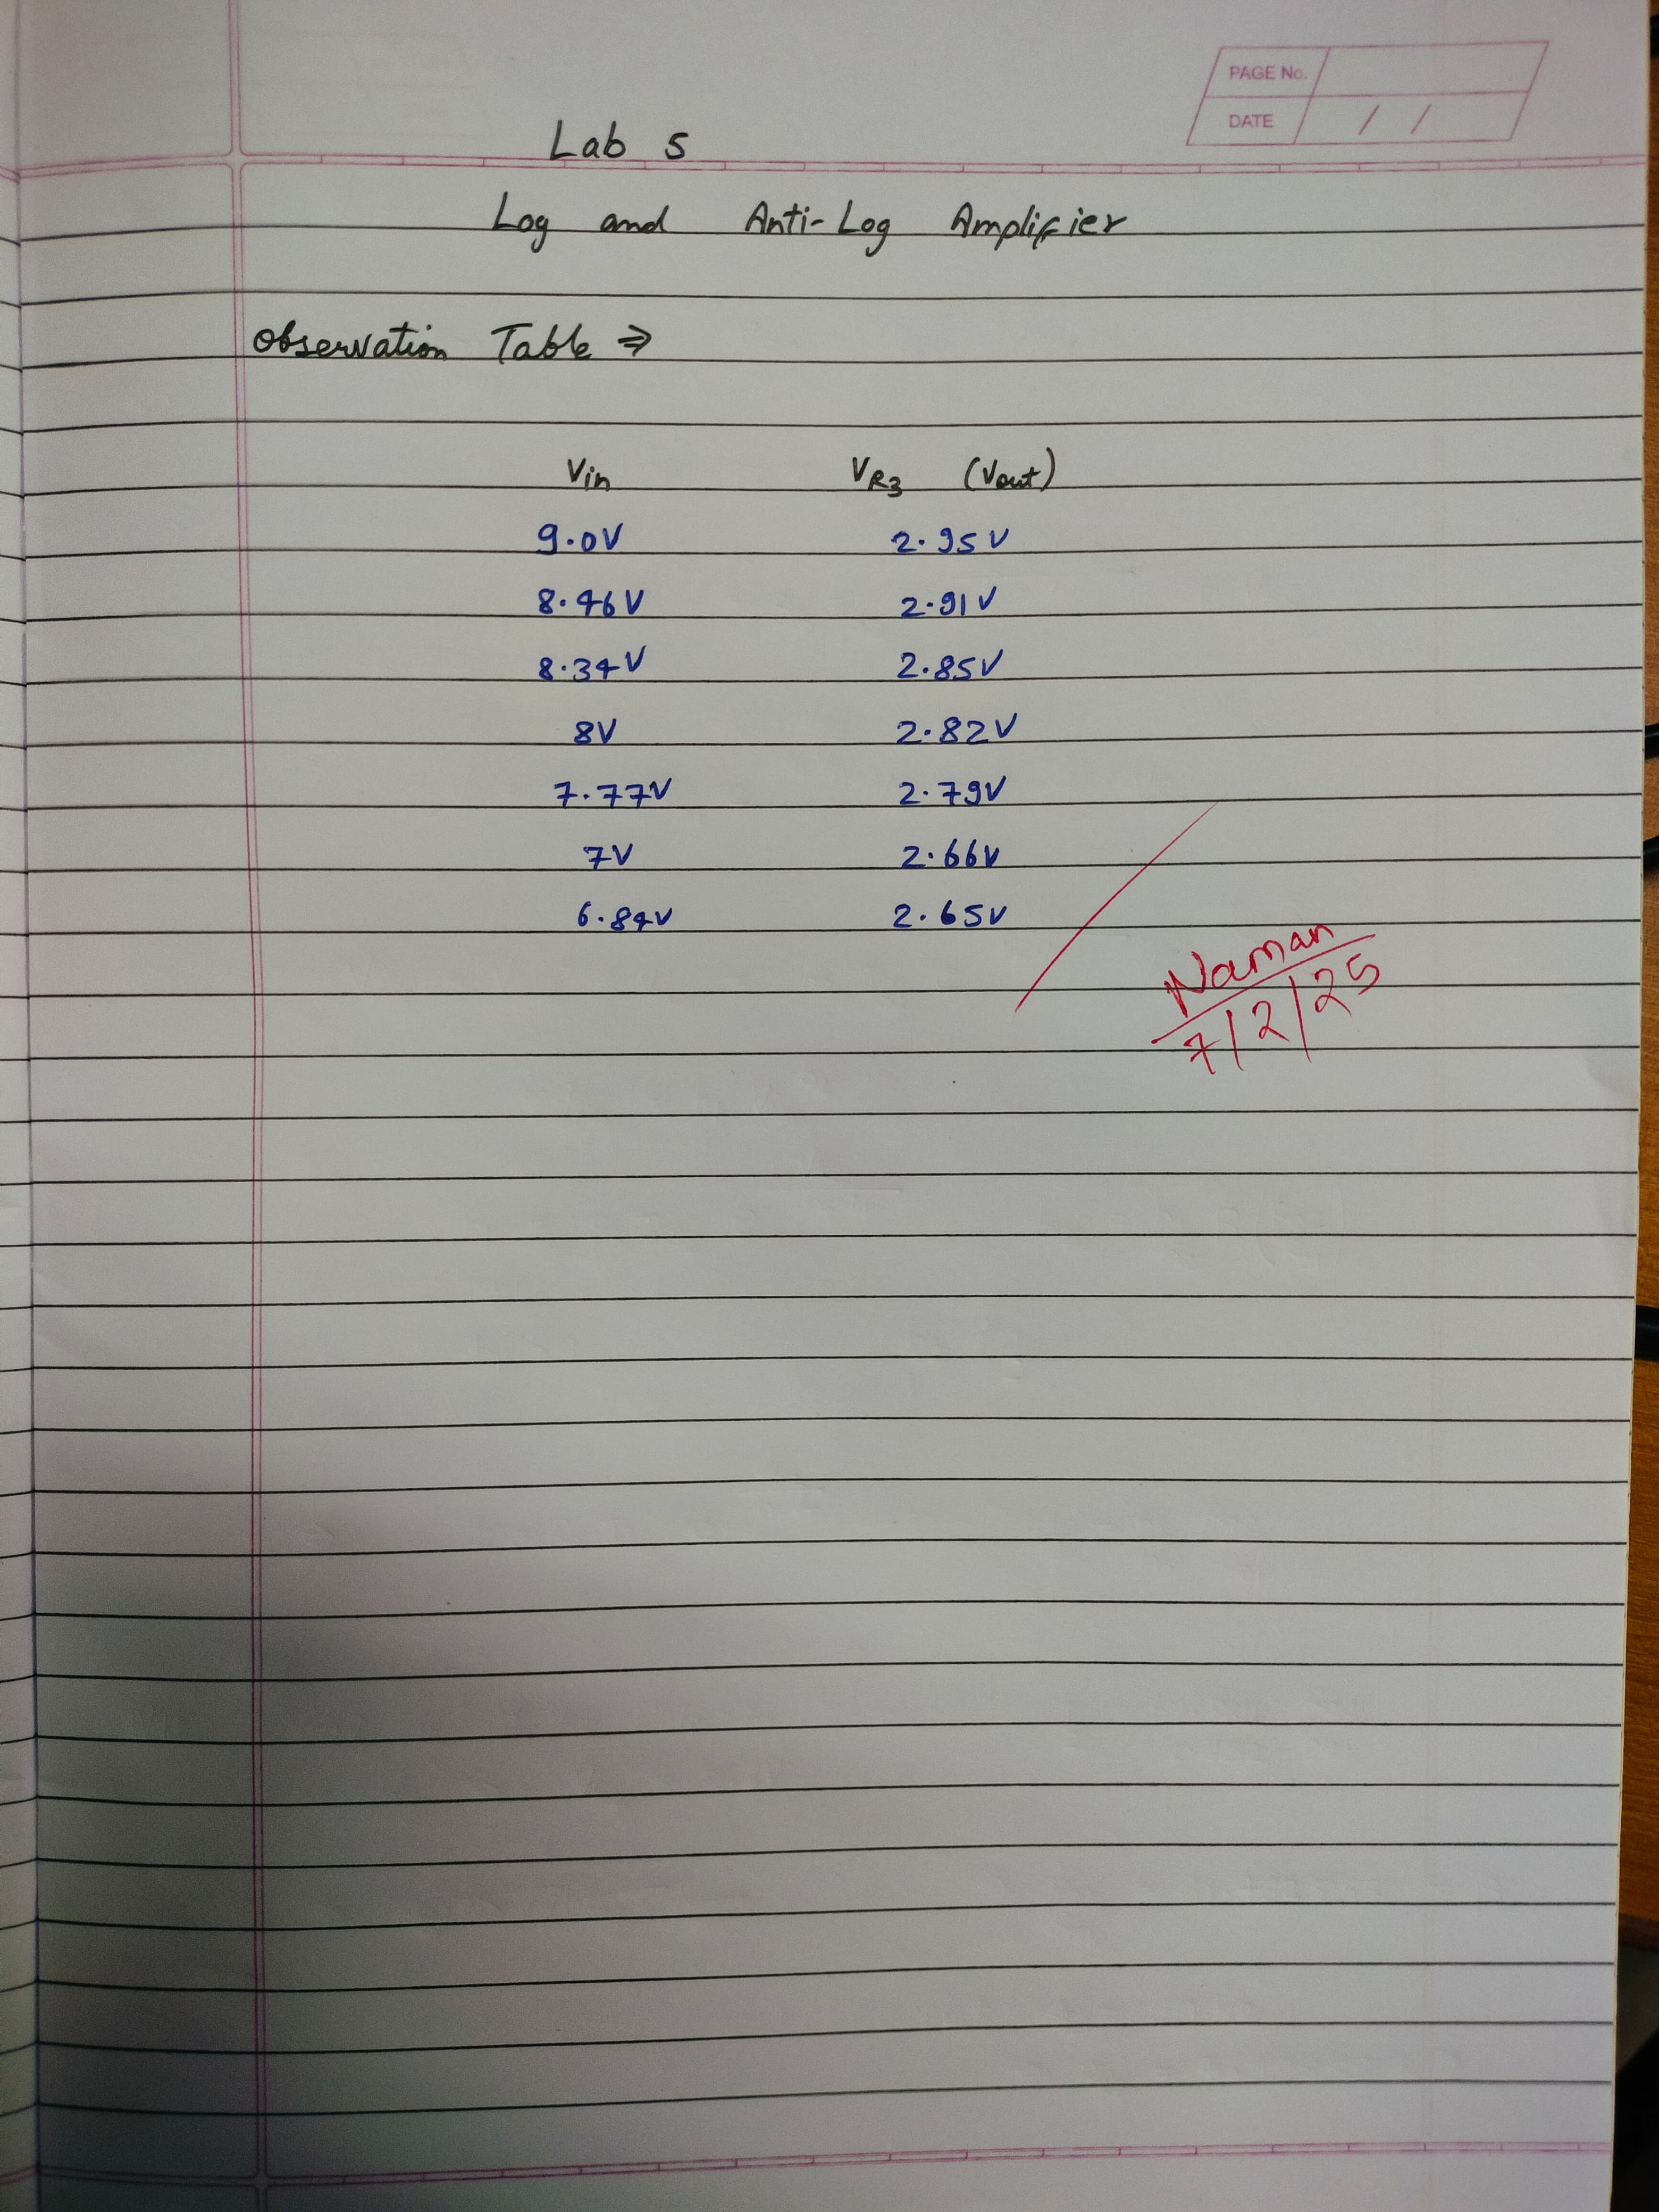 PAGE No.
DATE / /
Lab 5
Log and Anti-Log Amplifier
Observation Table ⇒
Vin VR3 (Vout)
9.0V 2.95V
8.46V 2.91V
8.34V 2.85V
8V 2.82V
7.77V 2.79V
7V 2.66V
6.84V 2.65V
Naman
7/2/25